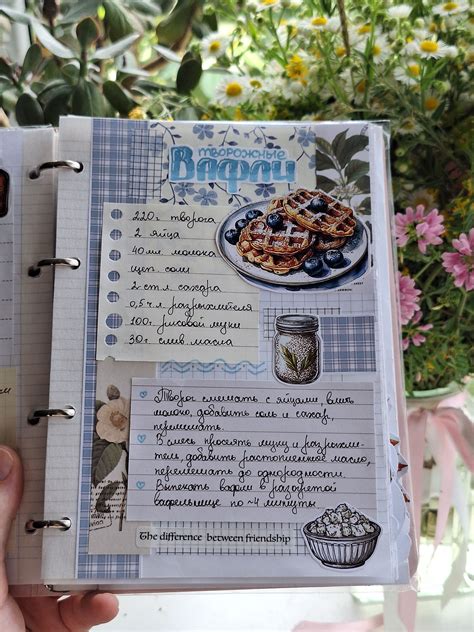 творожные
Вафли
220г творога
2 яйца
40мл молока
щеп. соли
2 ст.л. сахара
0,5 ч.л. разрыхлителя
100г рисовой муки
30г слив. масла
Творог смешать с яйцами, влить
молоко, добавить соль и сахар,
перемешать.
В смесь просеять муку и разрыхли-
тель, добавить растопленное масло,
перемешать до однородности.
Выпекать вафли в разогретой
вафельнице по ~4 минуты.
The difference between friendship